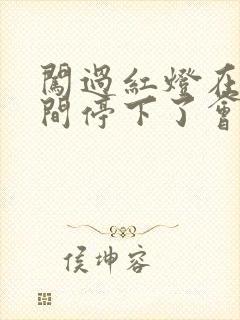 闖過紅燈在
間停下了會
侯坤容